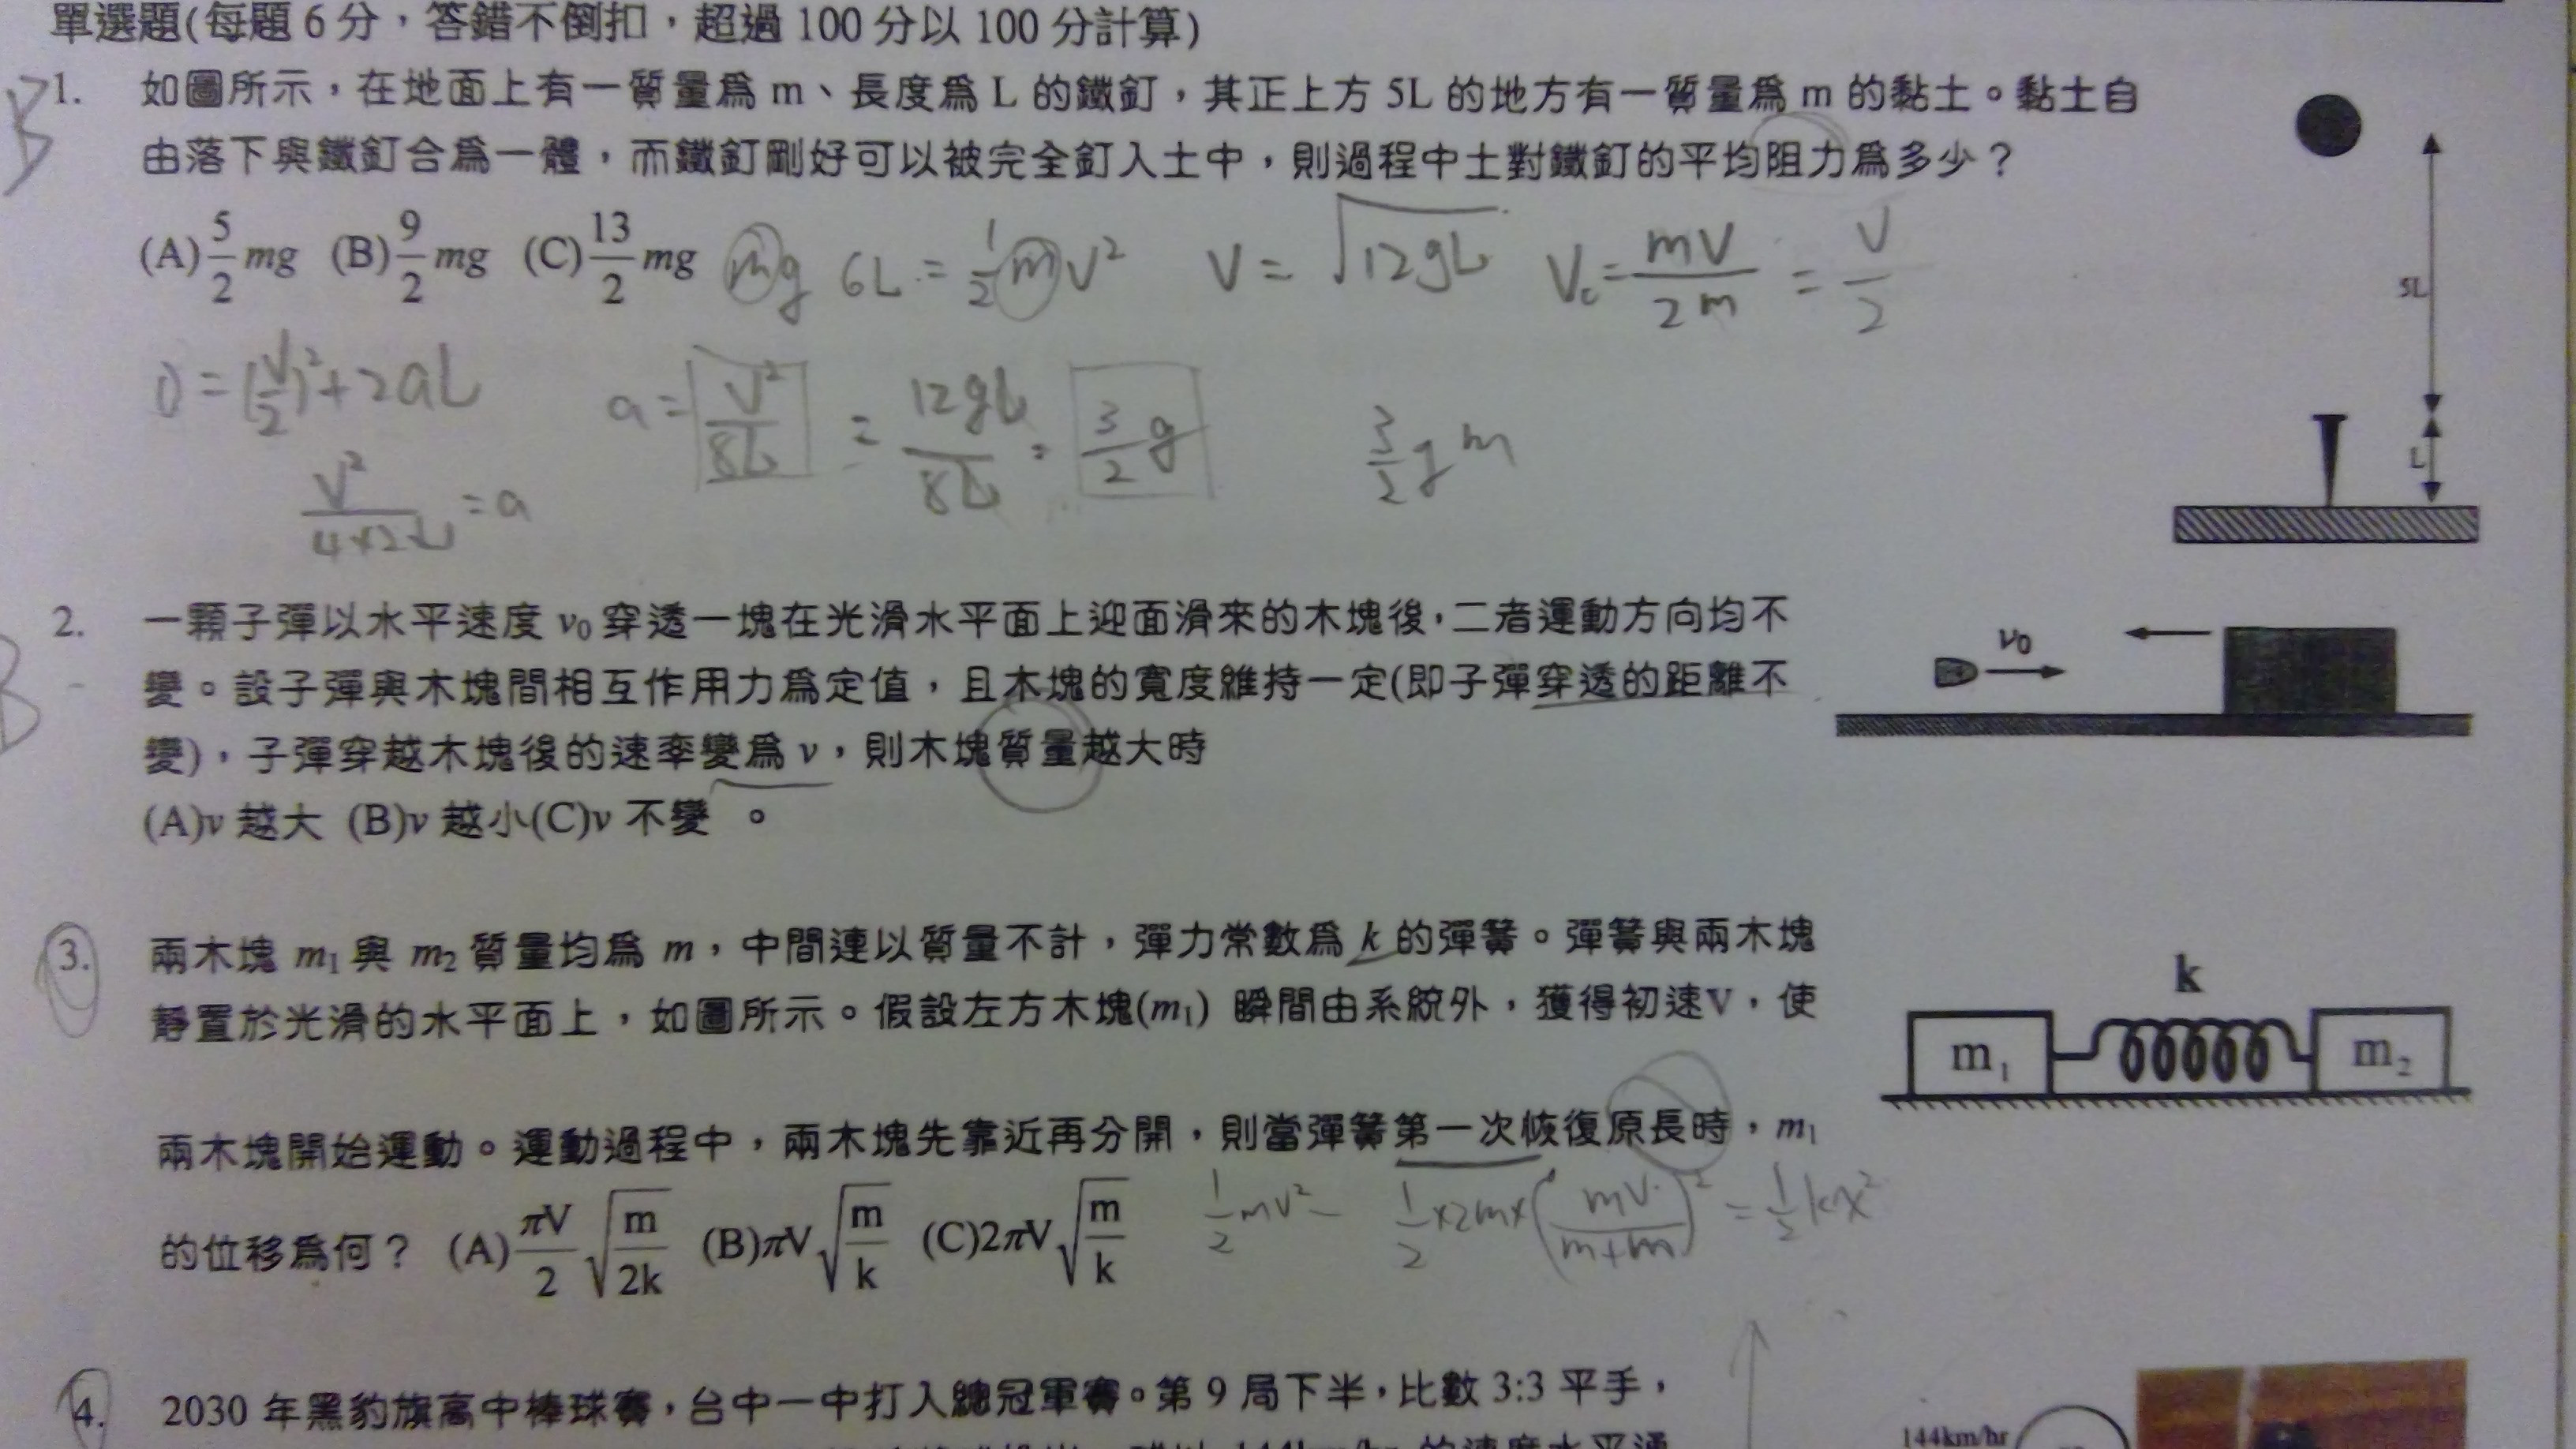 單選題(每題 6 分，答錯不倒扣，超過 100 分以 100 分計算)
B
1. 如圖所示，在地面上有一質量為 m、長度為 L 的鐵釘，其正上方 5L 的地方有一質量為 m 的黏土。黏土自
由落下與鐵釘合為一體，而鐵釘剛好可以被完全釘入土中，則過程中土對鐵釘的平均阻力為多少？
(A) 5/2 mg (B) 9/2 mg (C) 13/2 mg
mg 6L = 1/2 m V² V = √12gL Vc = mV/2m = V/2
0 = (V/2)² + 2aL a = V²/8L = 12gL/8L = 3/2 g 3/2 g m
V²/4×2L = a
5L
L
B
2. 一顆子彈以水平速度 v₀ 穿透一塊在光滑水平面上迎面滑來的木塊後，二者運動方向均不
變。設子彈與木塊間相互作用力為定值，且木塊的寬度維持一定(即子彈穿透的距離不
變)，子彈穿越木塊後的速率變為 v，則木塊質量越大時
(A)v 越大 (B)v 越小(C)v 不變 。
v₀
3. 兩木塊 m₁ 與 m₂ 質量均為 m，中間連以質量不計，彈力常數為 k 的彈簧。彈簧與兩木塊
靜置於光滑的水平面上，如圖所示。假設左方木塊(m₁) 瞬間由系統外，獲得初速V，使
兩木塊開始運動。運動過程中，兩木塊先靠近再分開，則當彈簧第一次恢復原長時，m₁
的位移為何？ (A) πV/2 √m/2k (B)πV √m/k (C)2πV √m/k
1/2 mV² − 1/2 ×2m×(mV/m+m)² = 1/2 kx²
k
m₁ m₂
4. 2030 年黑豹旗高中棒球賽，台中一中打入總冠軍賽。第 9 局下半，比數 3:3 平手，
144km/hr 的速度水平通
144km/hr